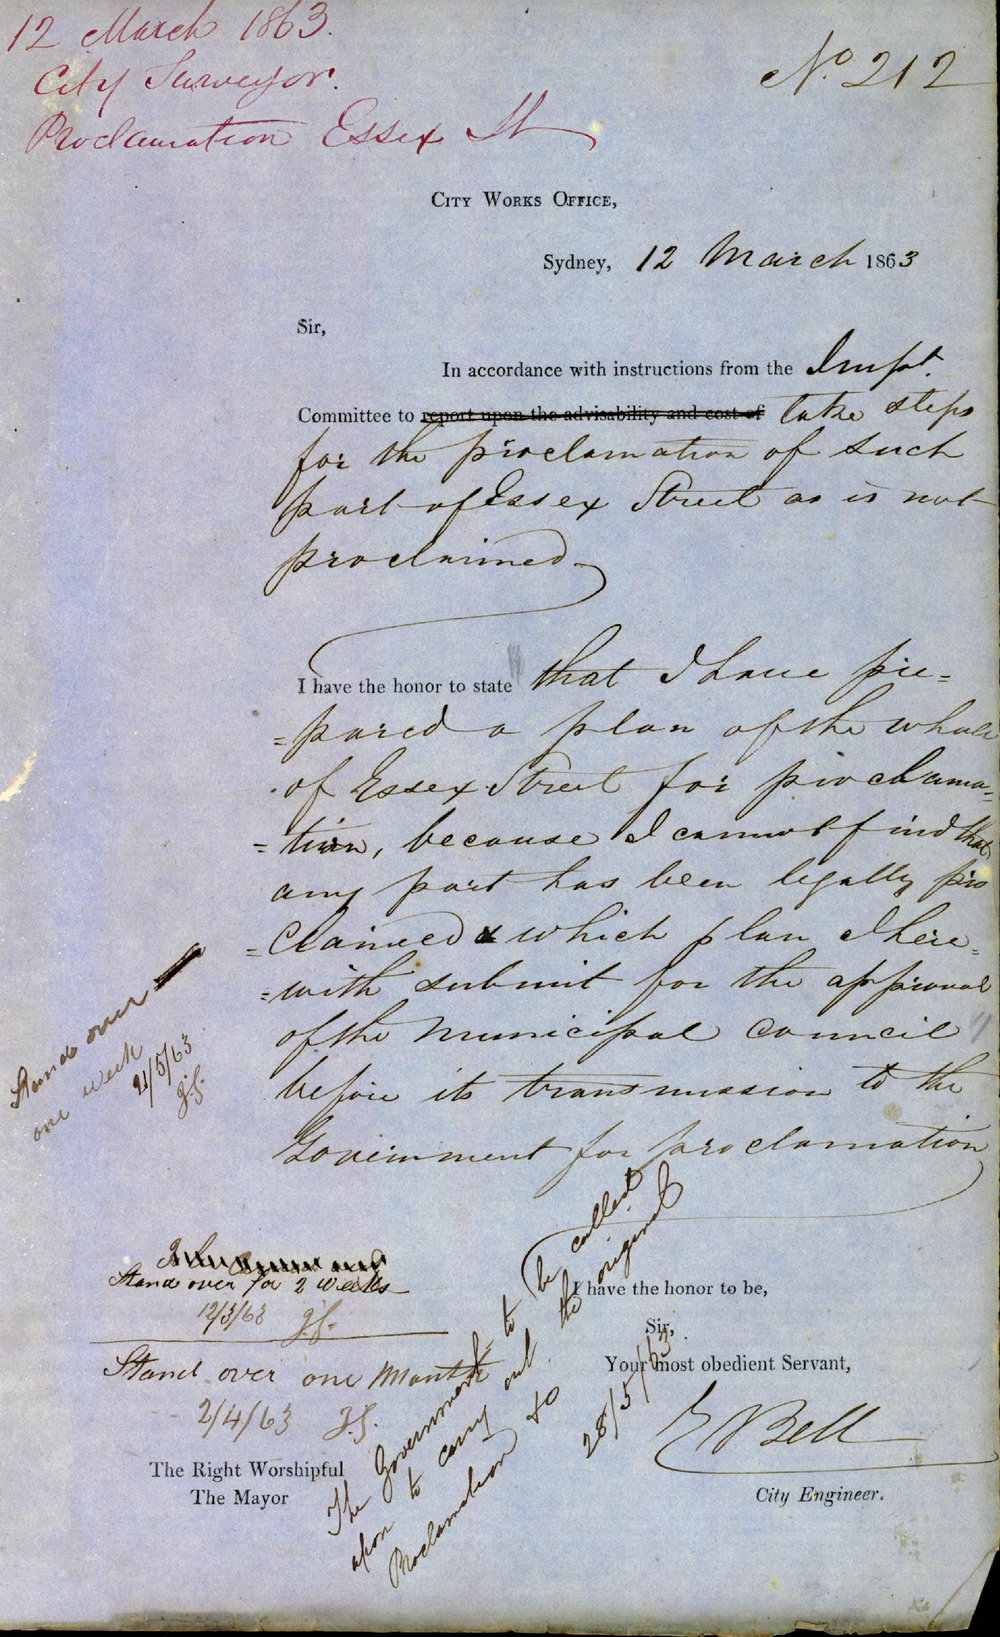 12 March 1863.
City Surveyor.
Proclamation Essex St
No. 212
City Works Office,
Sydney, 12 March 1863
Sir,
In accordance with instructions from the Impt.
Committee to report upon the advisability and cost of take steps
for the proclamation of such
part of Essex Street as is not
proclaimed.
I have the honor to state that I have pre=
=pared a plan of the whole
of Essex Street for proclama=
=tion, because I cannot find that
any part has been legally pro
=claimed & which plan I here=
=with submit for the approval
of the Municipal Council
before its transmission to the
Government for proclamation
I have the honor to be,
Sir,
Your most obedient Servant,
E Bell
City Engineer.
The Right Worshipful
The Mayor
Stand over for 2 weeks
12/3/63 J.S.
Stand over one Month
2/4/63 J.S.
Stand over
one week
21/5/63
J.S.
The Government to be called
upon to carry out the original
Proclamation
28/5/63